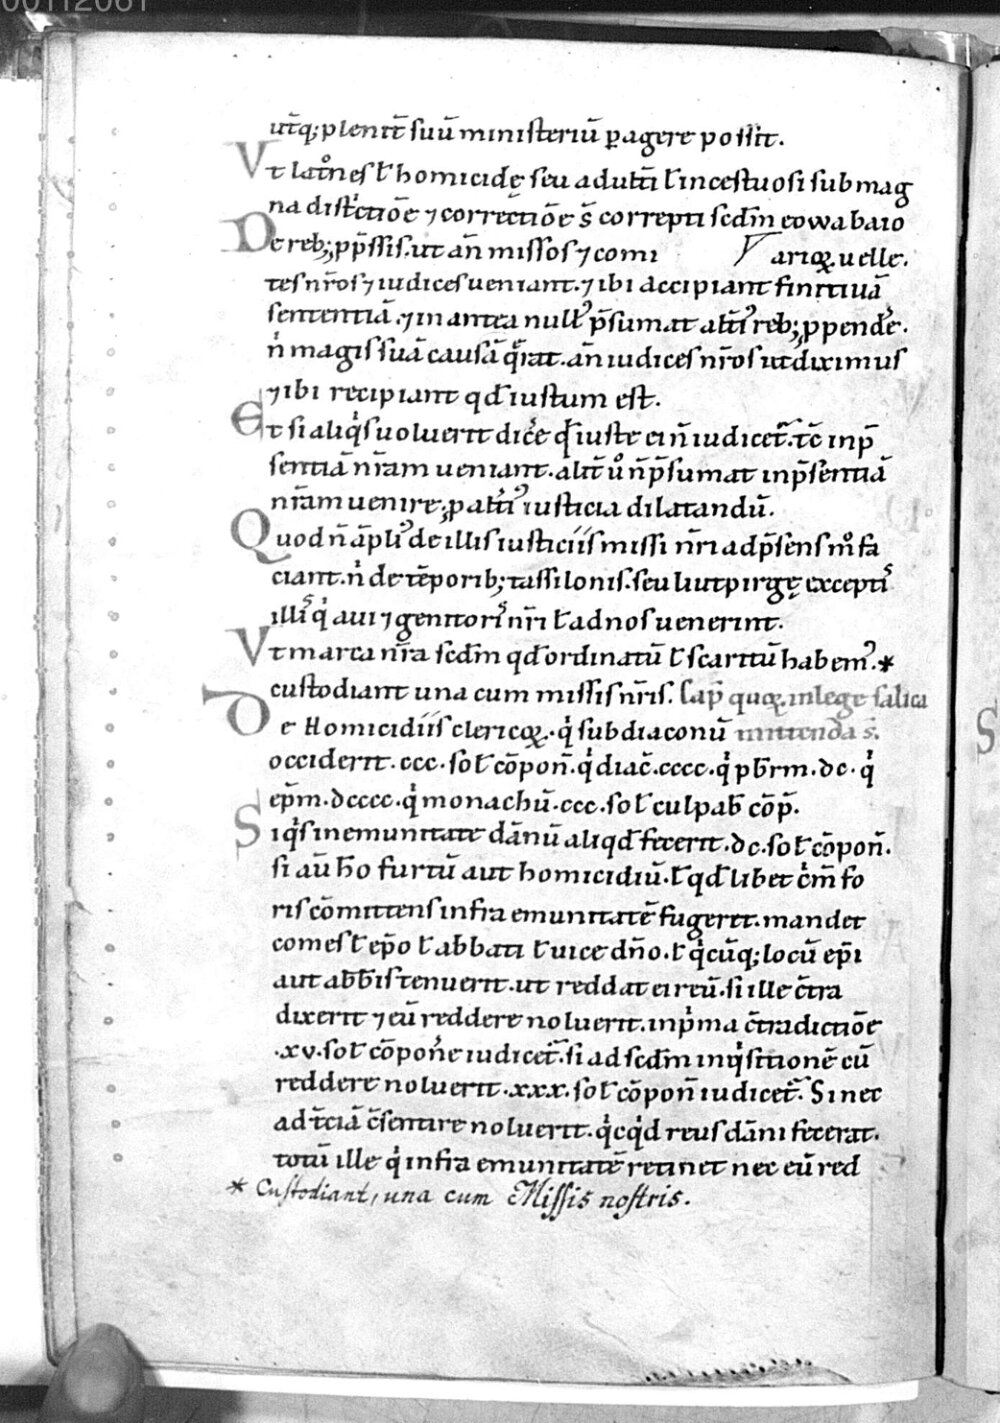 00112081
utq; plenit̄ suū ministeriū ꝑagere possit.
Vt latͦnes ł homicidę seu adult̄i ł incestuosi sub mag
na distͥctiōe ⁊ correctiōe s̄ correpti scdm̄ eowa baio
De reb; ꝓp̄ssis. ut an̄ missos ⁊ comi arioꝝ. u elle.
tes nr̄os ⁊ iudices ueniant. ⁊ ibi accipiant finitiuā
sententiā. ⁊ in antea null᷒ p̄sumat alt̄i᷒ reb; ꝓpendēr.
n̄ magis suā causā qͣ̄rat. an̄ iudices nr̄os ut diximus
⁊ ibi recipiant qđ iustum est.
Et si aliqͥs uoluerit dicēr qđ iuste ei n̄ iudicet᷑. tc̄ in p̄
sentiā nr̄am ueniant. alit̄ uͦ n̄ p̄sumat in p̄sentiā
nr̄am uenire, ꝓ alt̄i᷒ iusticia dilatandū.
Quod n̄ āpli᷒ de illis iusticiis missi nr̄i ad p̄sens mͦ fa
ciant. nͥ de tēporib; tassilonis. seu liutpirgę exceptͥs
illͥs qͥ aui ⁊ genitorͥs nr̄i ł ad nos uenerint.
Vt marca nr̄a scdm̄ qđ ordinatū ł scaritū habem᷒. *
custodiant una cum missis nr̄is. Cap̄ quoꝝ. in lege salica
De Homicidiis clericoꝝ. qͥ subdiaconū mittenda s̄.
occiderit. ccc. soł cōpon̄. qͥ diac̄. cccc. qͥ pb̄rm. dc. qͥ
ep̄m. dcccc. qͥ monachū. ccc. soł culpab̄ cōp̄.
Siqͥs in emunitate dānū aliqđ fecerit. dc. soł cōpon̄.
si aū ho furtū aut homicidiū. ł qđ libet cͥm̄ fo
ris cōmittens infra emunitatē fugerit. mandet
comes ł ep̄o ł abbati ł uice dn̄o. ł qͥcūq; locū ep̄i
aut abb̄is tenuerit. ut reddat ei reū. si ille c̄tra
dixerit ⁊ eū reddere noluerit. in pͥma c̄tradictiōe
.xv. soł cōpon̄e iudicet᷑. si ad scdm̄ inqͥsitionē eū
reddere noluerit. xxx. soł cōpon̄ iudicet᷑. Si nec
ad tc̄iā c̄sentire noluerit. qͥcqͥd reus dāni fecerat.
totū ille qͥ infra emunitatē retinet nec eū red
* Custodiant, una cum Missis nostris.